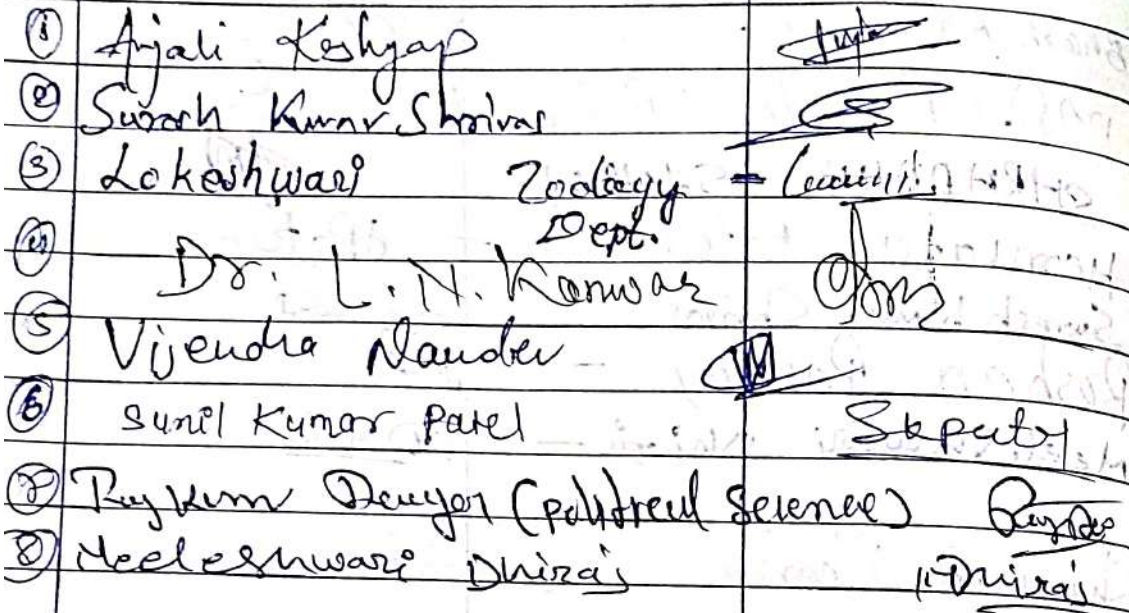 ① Anjali Keshyap
② Suresh Kumar Shrivas
③ Lokeshwari Zoology -
Dept.
④ Dr. L. N. Kanwar
⑤ Vijendra Namdev
⑥ Sunil Kumar Patel Skpatel
⑦ Rajkum (political Science)
⑧ Neeleshwari Dhiraj NDhiraj